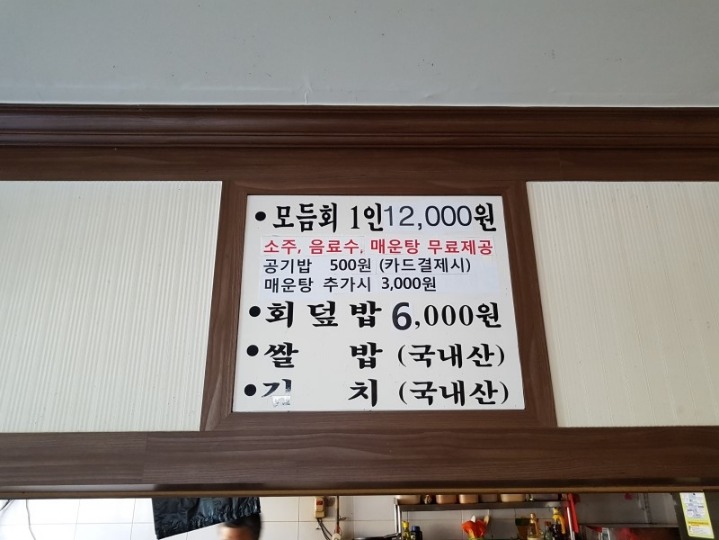 • 모듬회 1인12,000원
소주, 음료수, 매운탕 무료제공
공기밥 500원 (카드결제시)
매운탕 추가시 3,000원
• 회덮밥 6,000원
• 쌀 밥 (국내산)
• 김 치 (국내산)